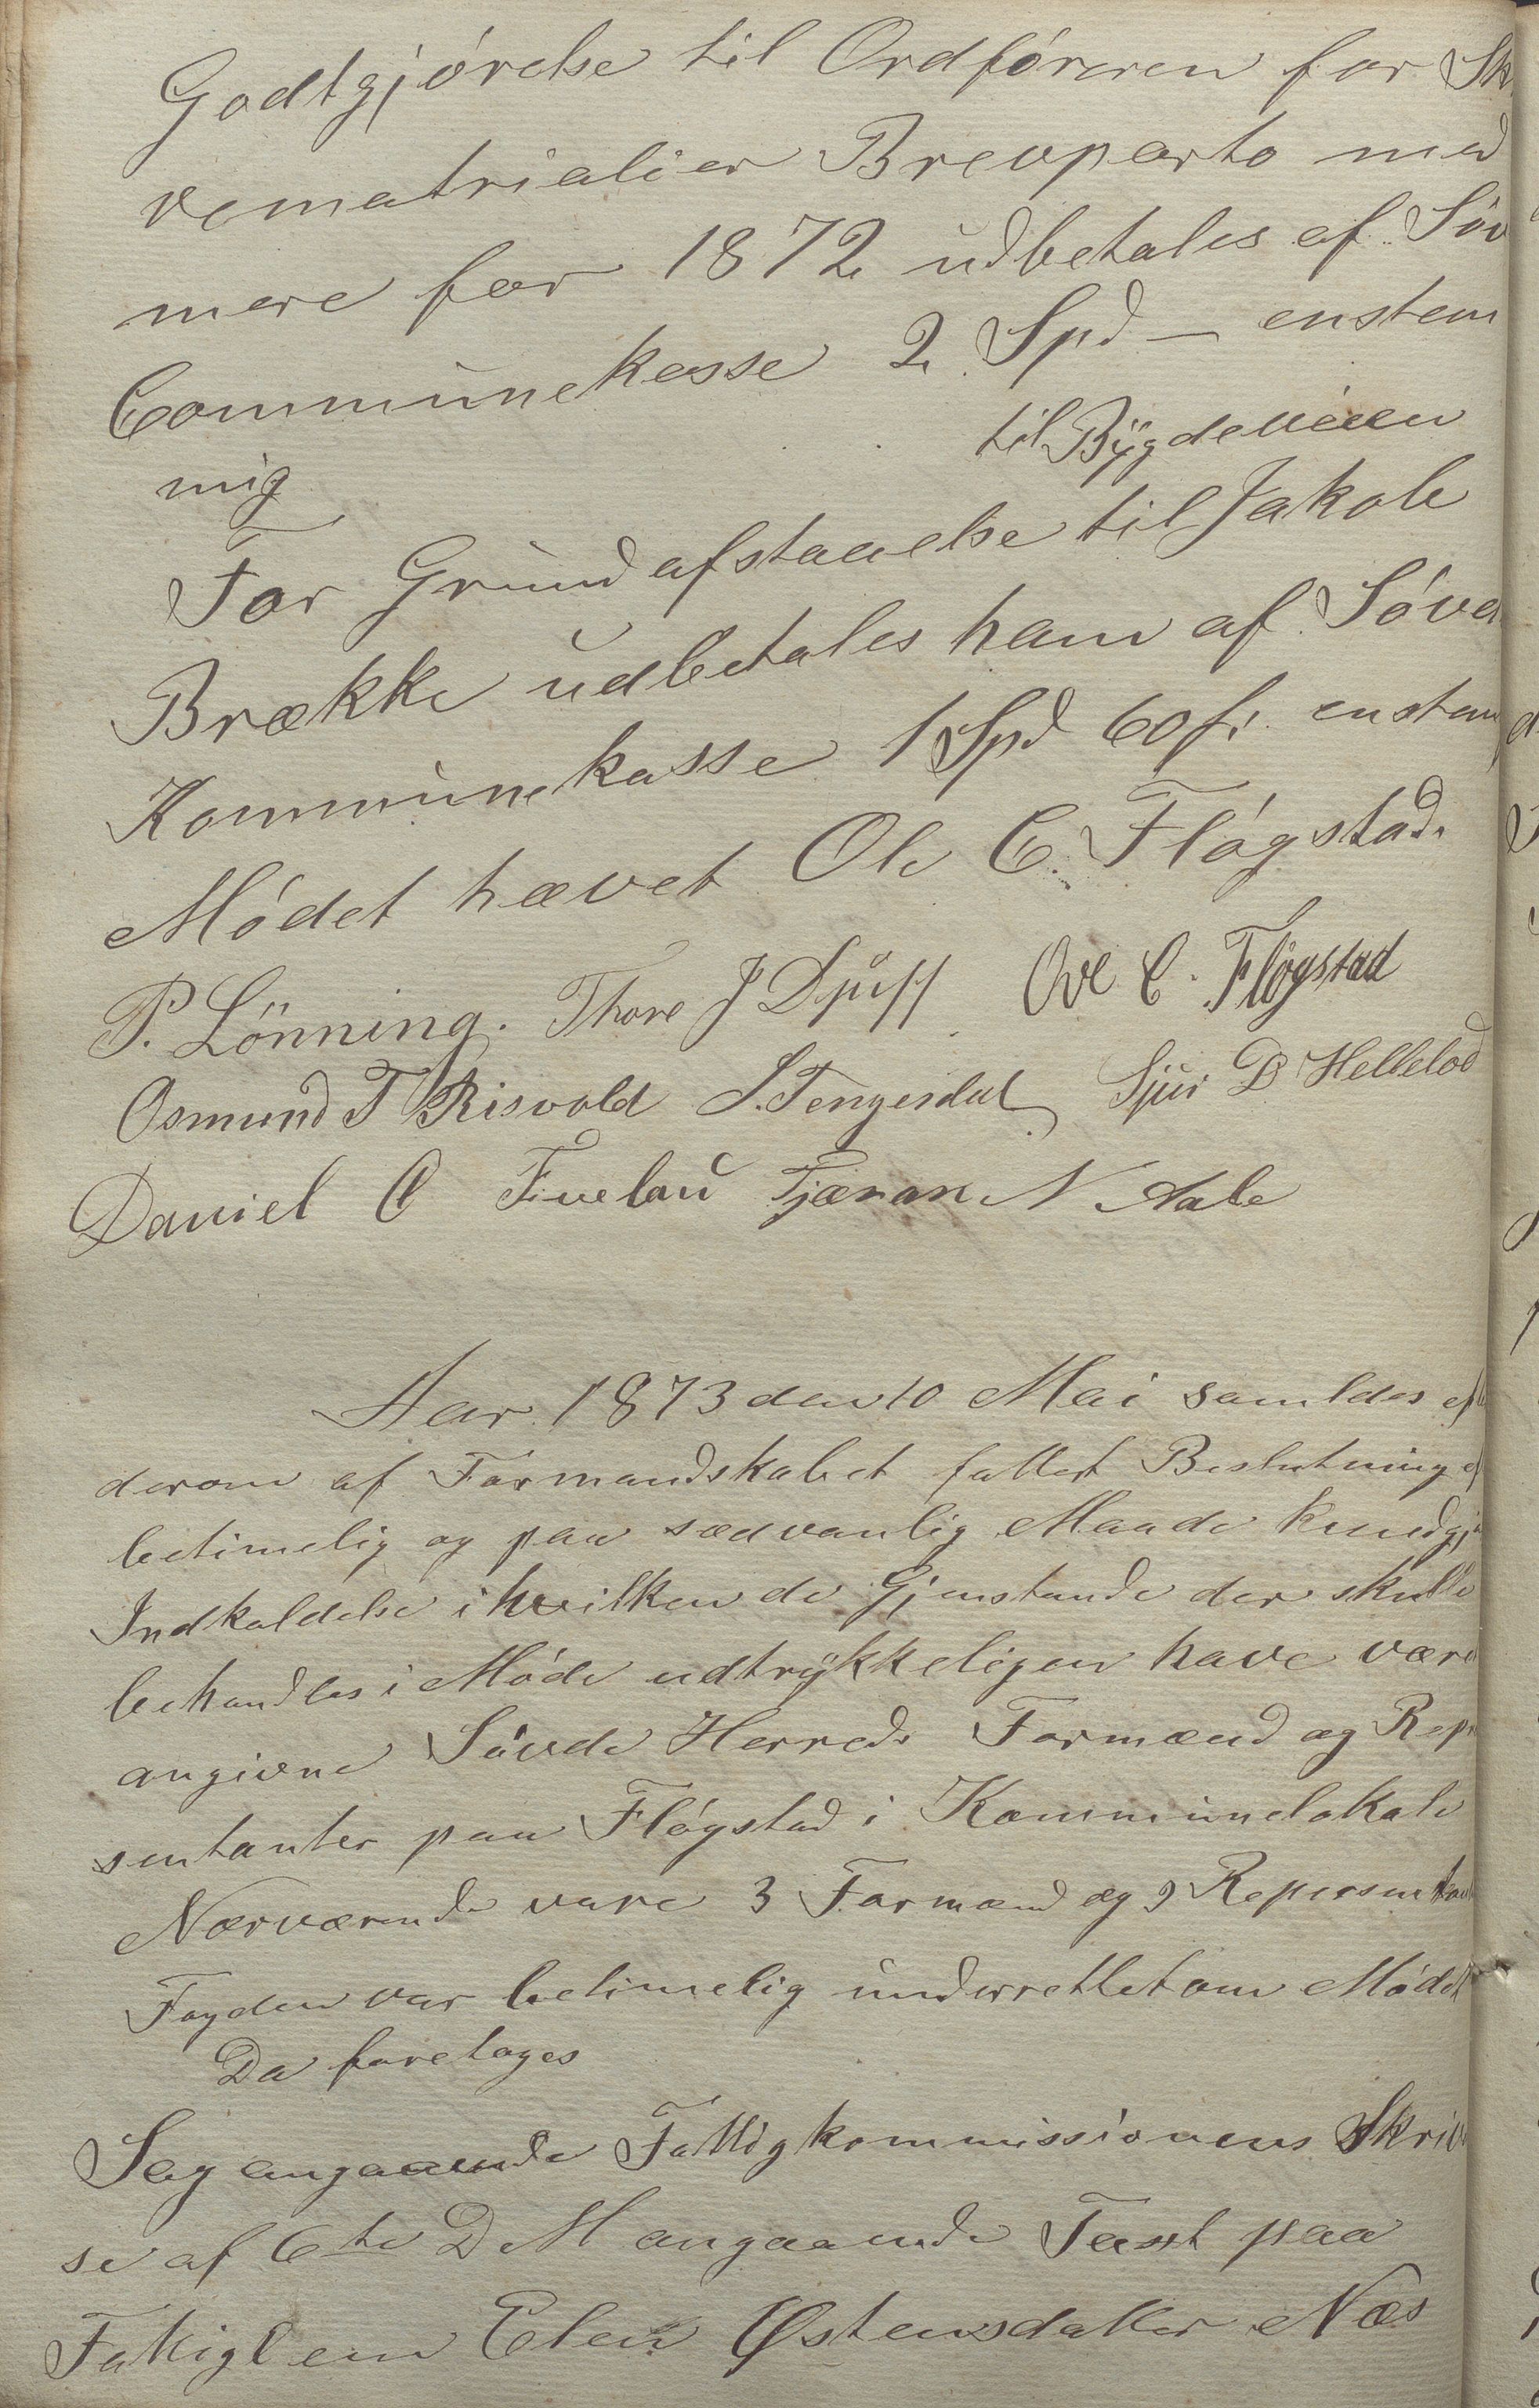 Godtgjórelse til Ordfóreren for Sk
vematrialier Brevporto med
mere for 1872 udbetales af Söv
Communekasse 2 Spd – enstem
mig
til Bÿgdeveien
For Grundafstaaelse til Jakob
Brække udbetales ham af Sóvd
Kommunekasse 1 Spd 60 f. enstem
Módet hævet Ole C. Flógstad.
P. Lönning. Thore J Djuff Ove C. Flógstad
Osmund T Risvold S. Tengesdal Sjur D Helleland
Daniel O Fiveland Tjæran N Aabe
Aar 1873 den 10 Mai samledes ef
derom af Formandskabet fattet Beslutning ef
betimelig og paa sædvanlig Maade kundgj
Indkaldelse i hvilken de Gjenstande der skulle
behandles i Móde udtrÿkkeligen have være
angivne Sóvde Herreds Formænd og Repr
sentanter paa Flógstad i Kommunelokale
Nærværende vare 3 Formænd og 9 Repersentan
Fogden var betimelig underrettet om Módet
Da foretoges
Sag angaaende Fattigkommissionens Skriv
se af 6te D M angaaende Taxt paa
Fattiglem Elen Østensdatter Næs